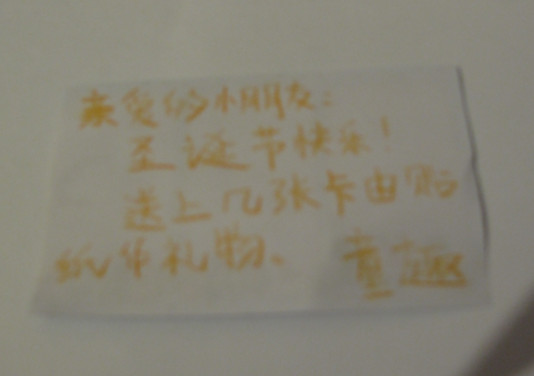 亲爱的小朋友:
圣诞节快乐!
送上几张卡由贴
纸作礼物、 童趣